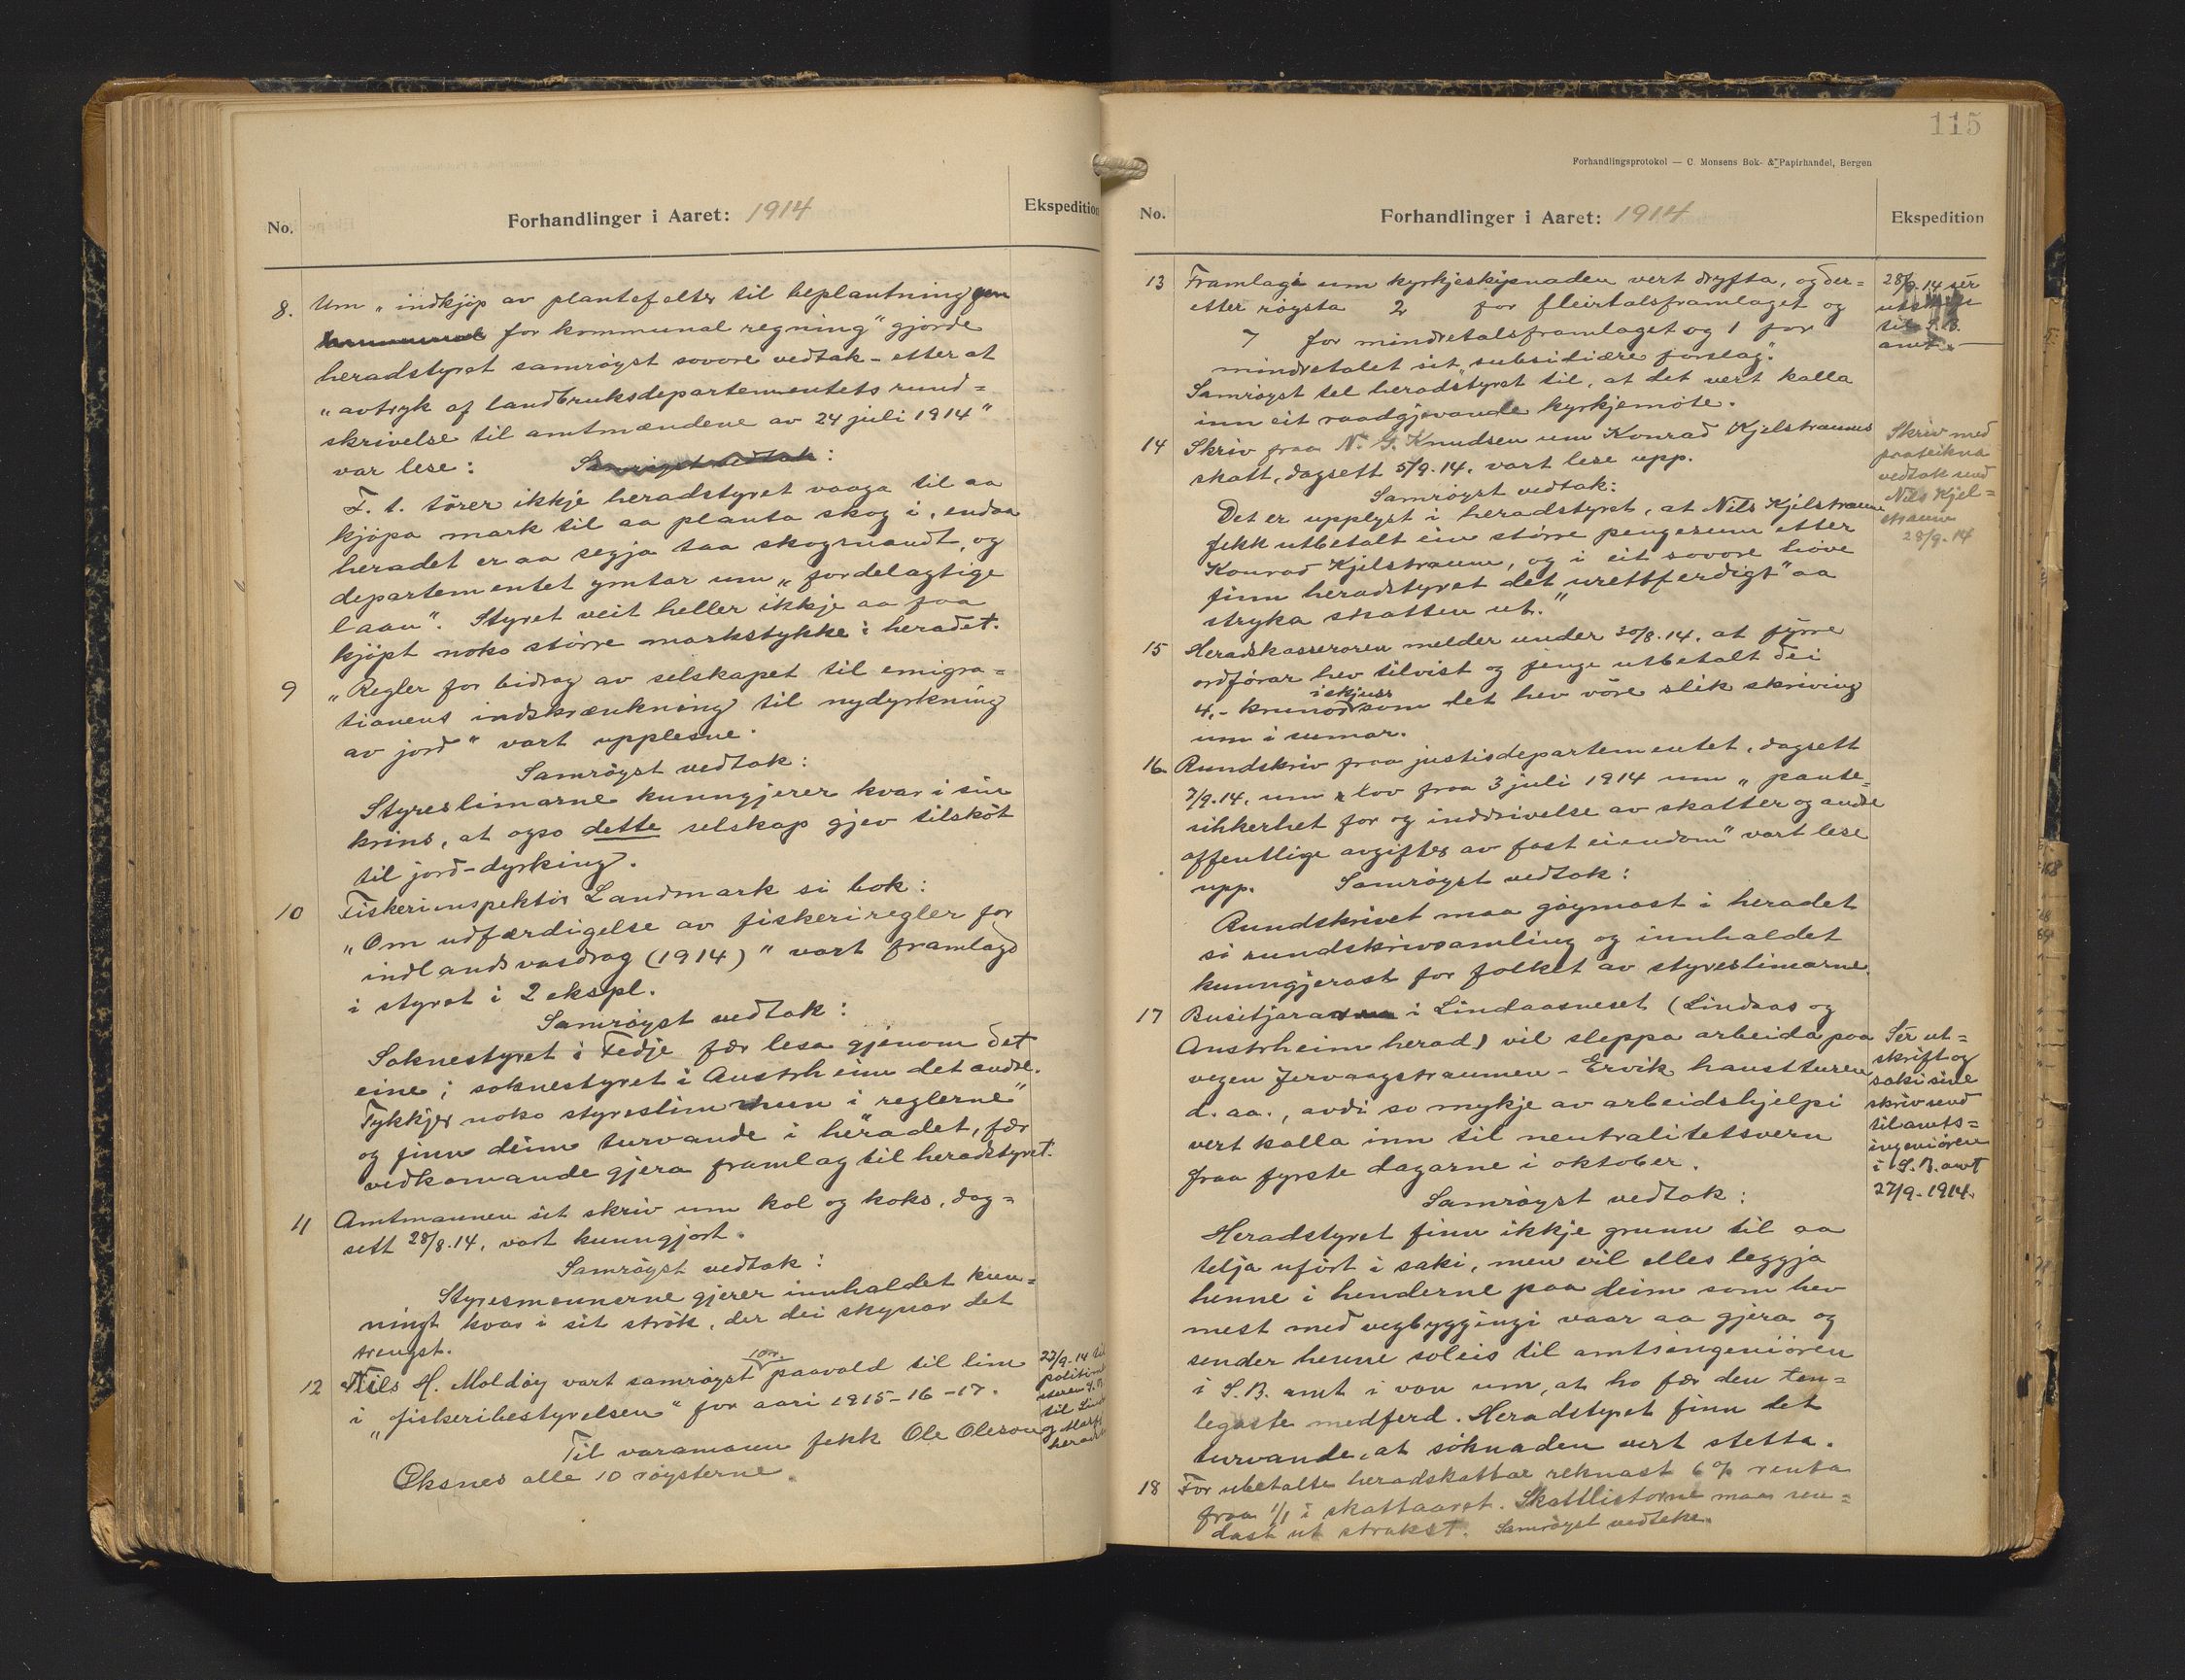 No.
Forhandlinger i Aaret: 1914
Ekspedition
8. Um „indkjøp av plantefelter til beplantning
for kommunal regning" gjorde
heradstyret samrøyst sovore vedtak - etter at
„avtryk af landbruksdepartementets rund=
skrivelse til amtmændene av 24 juli 1914"
var lese: Samrøyst vedtak:
F. t. törer ikkje heradstyret vaaga til aa
kjöpa mark til aa planta skog i, endaa
heradet er aa segja taa skogsnaudt, og
departementet ymtar um „fordelagtige
laan". Styret veit heller ikkje aa faa
kjöpt noko större markstykke i heradet.
9 „Regler for bidrag av selskapet til emigra=
tionens indskrænkning til nydyrkning
av jord" vart upplesne.
Samröyst vedtak:
Styreslimarne kunngjerer kvar i sin
krins, at ogso dette selskap gjev tilsköt
til jord-dyrking.
10 Fiskeriinspektör Landmark si bok:
„Om udfærdigelse av fiskeriregler for
indlandsvasdrag (1914)" vart framlagd
i styret i 2 ekspl.
Samröyst vedtak:
Soknestyret i Fedje fær lesa gjenom det
eine; soknestyret i Austrheim det andre.
Tykkjer noko styreslim um i reglerne"
og finn deim turvande i heradet, fær
vedkomande gjera framlag til heradstyret.
11 Amtmannen sit skriv um kol og koks, dag=
sett 28/8.14, vart kunngjort.
Samröyst vedtak:
Styresmennerne gjerer innhaldet kun=
nigt kvar i sit strök, der dei skynar det
trengst.
12 Nils H. Moldöy vart samröyst paavald til lim
10 r.
i „fiskeribestyrelsen" for aari 1915-16-17.
Til varamann fekk Ole Oleson
Öksnes alle 10 röysterne.
27/9-14 til
politim
steren S.B.
til Lind
og Masf
herad
115
Forhandlingsprotokol — C. Monsens Bok- & Papirhandel, Bergen
No.
Forhandlinger i Aaret: 1914
Ekspedition
13 Framlagi um kyrkjeskipnaden vert dryfta, og der=
etter röysta 2 for fleirtalsframlaget og
7 for mindretalsframlaget og 1 for
mindretalet sit „subsidiære forslag".
Samröyst tel heradstyret til, at det vert kalla
inn eit raadgjevande kyrkjemöte.
28/9.14 sér
utskrift
til S.B.
amt.
14 Skriv fraa N. G. Knudsen um Konrad Kjelstraumes
skatt, dagsett 5/9.14, vart lese upp.
Samröyst vedtak:
Det er upplyst i heradstyret, at Nils Kjelstraum
fekk utbetalt ein större pengesum etter
Konrad Kjelstraum, og i eit sovore höve
finn heradstyret det „urettferdigt" aa
stryka skatten ut."
Skriv med
paateikna
vedtak send
Nils Kjel=
straum
28/9-14
15 Heradskasseraren melder under 30/8.14, at fyrre
ordförar hev tilvist og fenge utbetalt dei
4,- krunor som det hev vöre slik skriving
i skjuss
um i sumar.
16 Rundskriv fraa justisdepartementet, dagsett
7/9.14, um lov fraa 3 juli 1914 um „pante=
sikkerhet for og inddrivelse av skatter og andre
offentlige avgifter av fast eiendom" vart lese
upp. Samröyst vedtak:
Rundskrivet maa göymast i heradet
si rundskrivsamling og innhaldet
kunngjerast for folket av styreslimarne.
17 Busitjarar i Lindaasneset (Lindaas og
Austrheim herad) vil sleppa arbeida paa
vegen Fervaagstraumen - Ervik haustturen
d. aa., avdi so mykje av arbeidshjelpi
vert kalla inn til neutralitetsvern
fraa fyrste dagarne i oktober.
Samröyst vedtak:
Heradstyret finn ikkje grunn til aa
telja ufört i saki, men vil elles leggja
henne i henderne paa deim som hev
mest med vegbyggingi vaar aa gjera og
sender henne soleis til amtsingeniören
i S.B. amt i von um, at ho fær den ten=
legaste medferd. Heradstyret finn det
turvande, at söknaden vert stetta.
Sér ut=
skrift og
saki sine
skriv send
til amts=
ingeniören
i S.B. amt
27/9-1914.
18 For ubetalte heradskattar reknast 6 % renta
fraa 1/1 i skattaaret. Skattlistorne maa sen=
dast ut strakst. Samröyst vedteke.